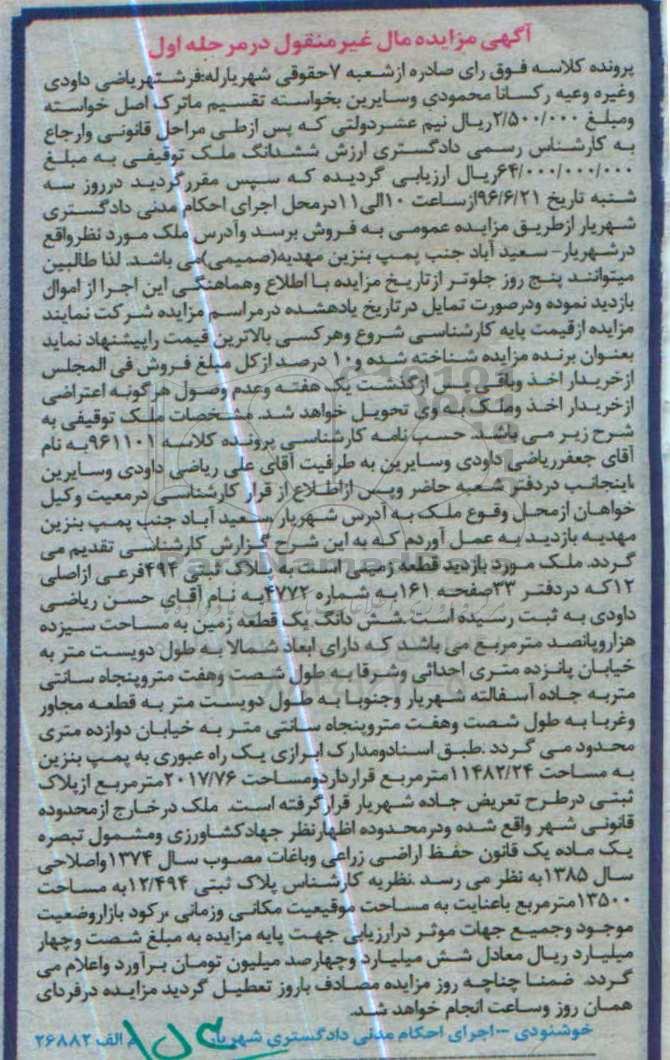 آگهی مزایده مال غیر منقول در مرحله اول
پرونده کلاسه فوق رای صادره از شعبه ۷حقوقی شهریارله:فرشته‌ریاضی داودی
وغیره وعیه رکسانا محمودی وسایرین بخواسته تقسیم ماترک اصل خواسته
ومبلغ ۲/۵۰۰/۰۰۰ریال نیم عشردولتی که پس ازطی مراحل قانونی وارجاع
به کارشناس رسمی دادگستری ارزش ششدانگ ملک توقیفی به مبلغ
۶۴/۰۰۰/۰۰۰/۰۰۰ریال ارزیابی گردیده که سپس مقررگردید درروز سه
شنبه تاریخ ۹۶/۶/۲۱ازساعت ۱۰الی۱۱درمحل اجرای احکام مدنی دادگستری
شهریار ازطریق مزایده عمومی به فروش برسد وآدرس ملک مورد نظرواقع
درشهریار- سعید آباد جنب پمپ بنزین مهدیه(صمیمی)می باشد. لذا طالبین
میتوانند پنج روز جلوتر ازتاریخ مزایده با اطلاع وهماهنگی این اجرا از اموال
بازدید نموده ودرصورت تمایل درتاریخ یادهشده درمراسم مزایده شرکت نمایند
مزایده ازقیمت پایه کارشناسی شروع وهرکسی بالاترین قیمت راپیشنهاد نماید
بعنوان برنده مزایده شناخته شده و۱۰ درصد ازکل مبلغ فروش فی المجلس
ازخریدار اخذ وباقی پل ازگذشت یک هفته وعدم وصول هرگونه اعتراضی
ازخریدار اخذ وملک به وی تحویل خواهد شد. مشخصات ملک توقیفی به
شرح زیر می باشد. حسب نامه کارشناسی پرونده کلاسه ۹۶۱۱۰۱به نام
آقای جعفرریاضی داودی وسایرین به طرفیت آقای علی ریاضی داودی وسایرین
،اینجانب دردفتر شعبه حاضر وپس ازاطلاع از قرار کارشناسی درمعیت وکیل
خواهان ازمحل وقوع ملک به آدرس شهریار ،سعید آباد جنب پمپ بنزین
مهدیه بازدید به عمل آوردم که به این شرح گزارش کارشناسی تقدیم می
گردد. ملک مورد بازدید قطعه زمینی است به پلاک ثبتی ۴۹۴فرعی ازاصلی
۱۲که دردفتر ۳۳صفحه ۱۶۱به شماره ۴۷۷۲به نام آقای حسن ریاضی
داودی به ثبت رسیده است .شش دانگ یک قطعه زمین به مساحت سیزده
هزاروپانصد مترمربع می باشد که دارای ابعاد شمالا به طول دویست متر به
خیابان پانزده متری احداثی وشرقا به طول شصت وهفت مترو‌پنجاه سانتی
متربه جاده آسفالته شهریار وجنوبا به طول دویست متر به قطعه مجاور
وغربا به طول شصت وهفت متروپنجاه سانتی متر به خیابان دوازده متری
محدود می گردد .طبق اسنادومدارک ابرازی یک راه عبوری به پمپ بنزین
به مساحت ۱۱۴۸۲/۲۴مترمربع قراردارد‌ومساحت ۲۰۱۷/۷۶مترمربع ازپلاک
ثبتی درطرح تعریض جاده شهریار قرارگرفته است. ملک درخارج ازمحدوده
قانونی شهر واقع شده ودرمحدوده اظهارنظر جهادکشاورزی ومشمول تبصره
یک ماده یک قانون حفظ اراضی زراعی وباغات مصوب سال ۱۳۷۴واصلاحی
سال ۱۳۸۵به نظر می رسد .نظریه کارشناس پلاک ثبتی ۱۲/۴۹۴به مساحت
۱۳۵۰۰مترمربع باعنایت به مساحت موقیعیت مکانی وزمانی ،رکود بازاروضعیت
موجود وجمیع جهات موثر درارزیابی جهت پایه مزایده به مبلغ شصت وچهار
میلیارد ریال معادل شش میلیارد وچهارصد میلیون تومان برآورد واعلام می
گردد. ضمنا چناچه روز مزایده مصادف باروز تعطیل گردید مزایده درفردای
همان روز وساعت انجام خواهد شد.
خوشنودی -اجرای احکام مدنی دادگستری شهریار م الف ۲۶۸۸۲